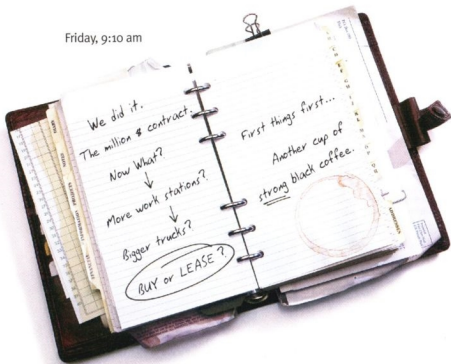 Friday, 9:10 am
We did it.
The million $ contract.
Now What?
↓
More work stations?
↓
Bigger trucks?
BUY or LEASE?
First things first...
Another cup of
strong black coffee.